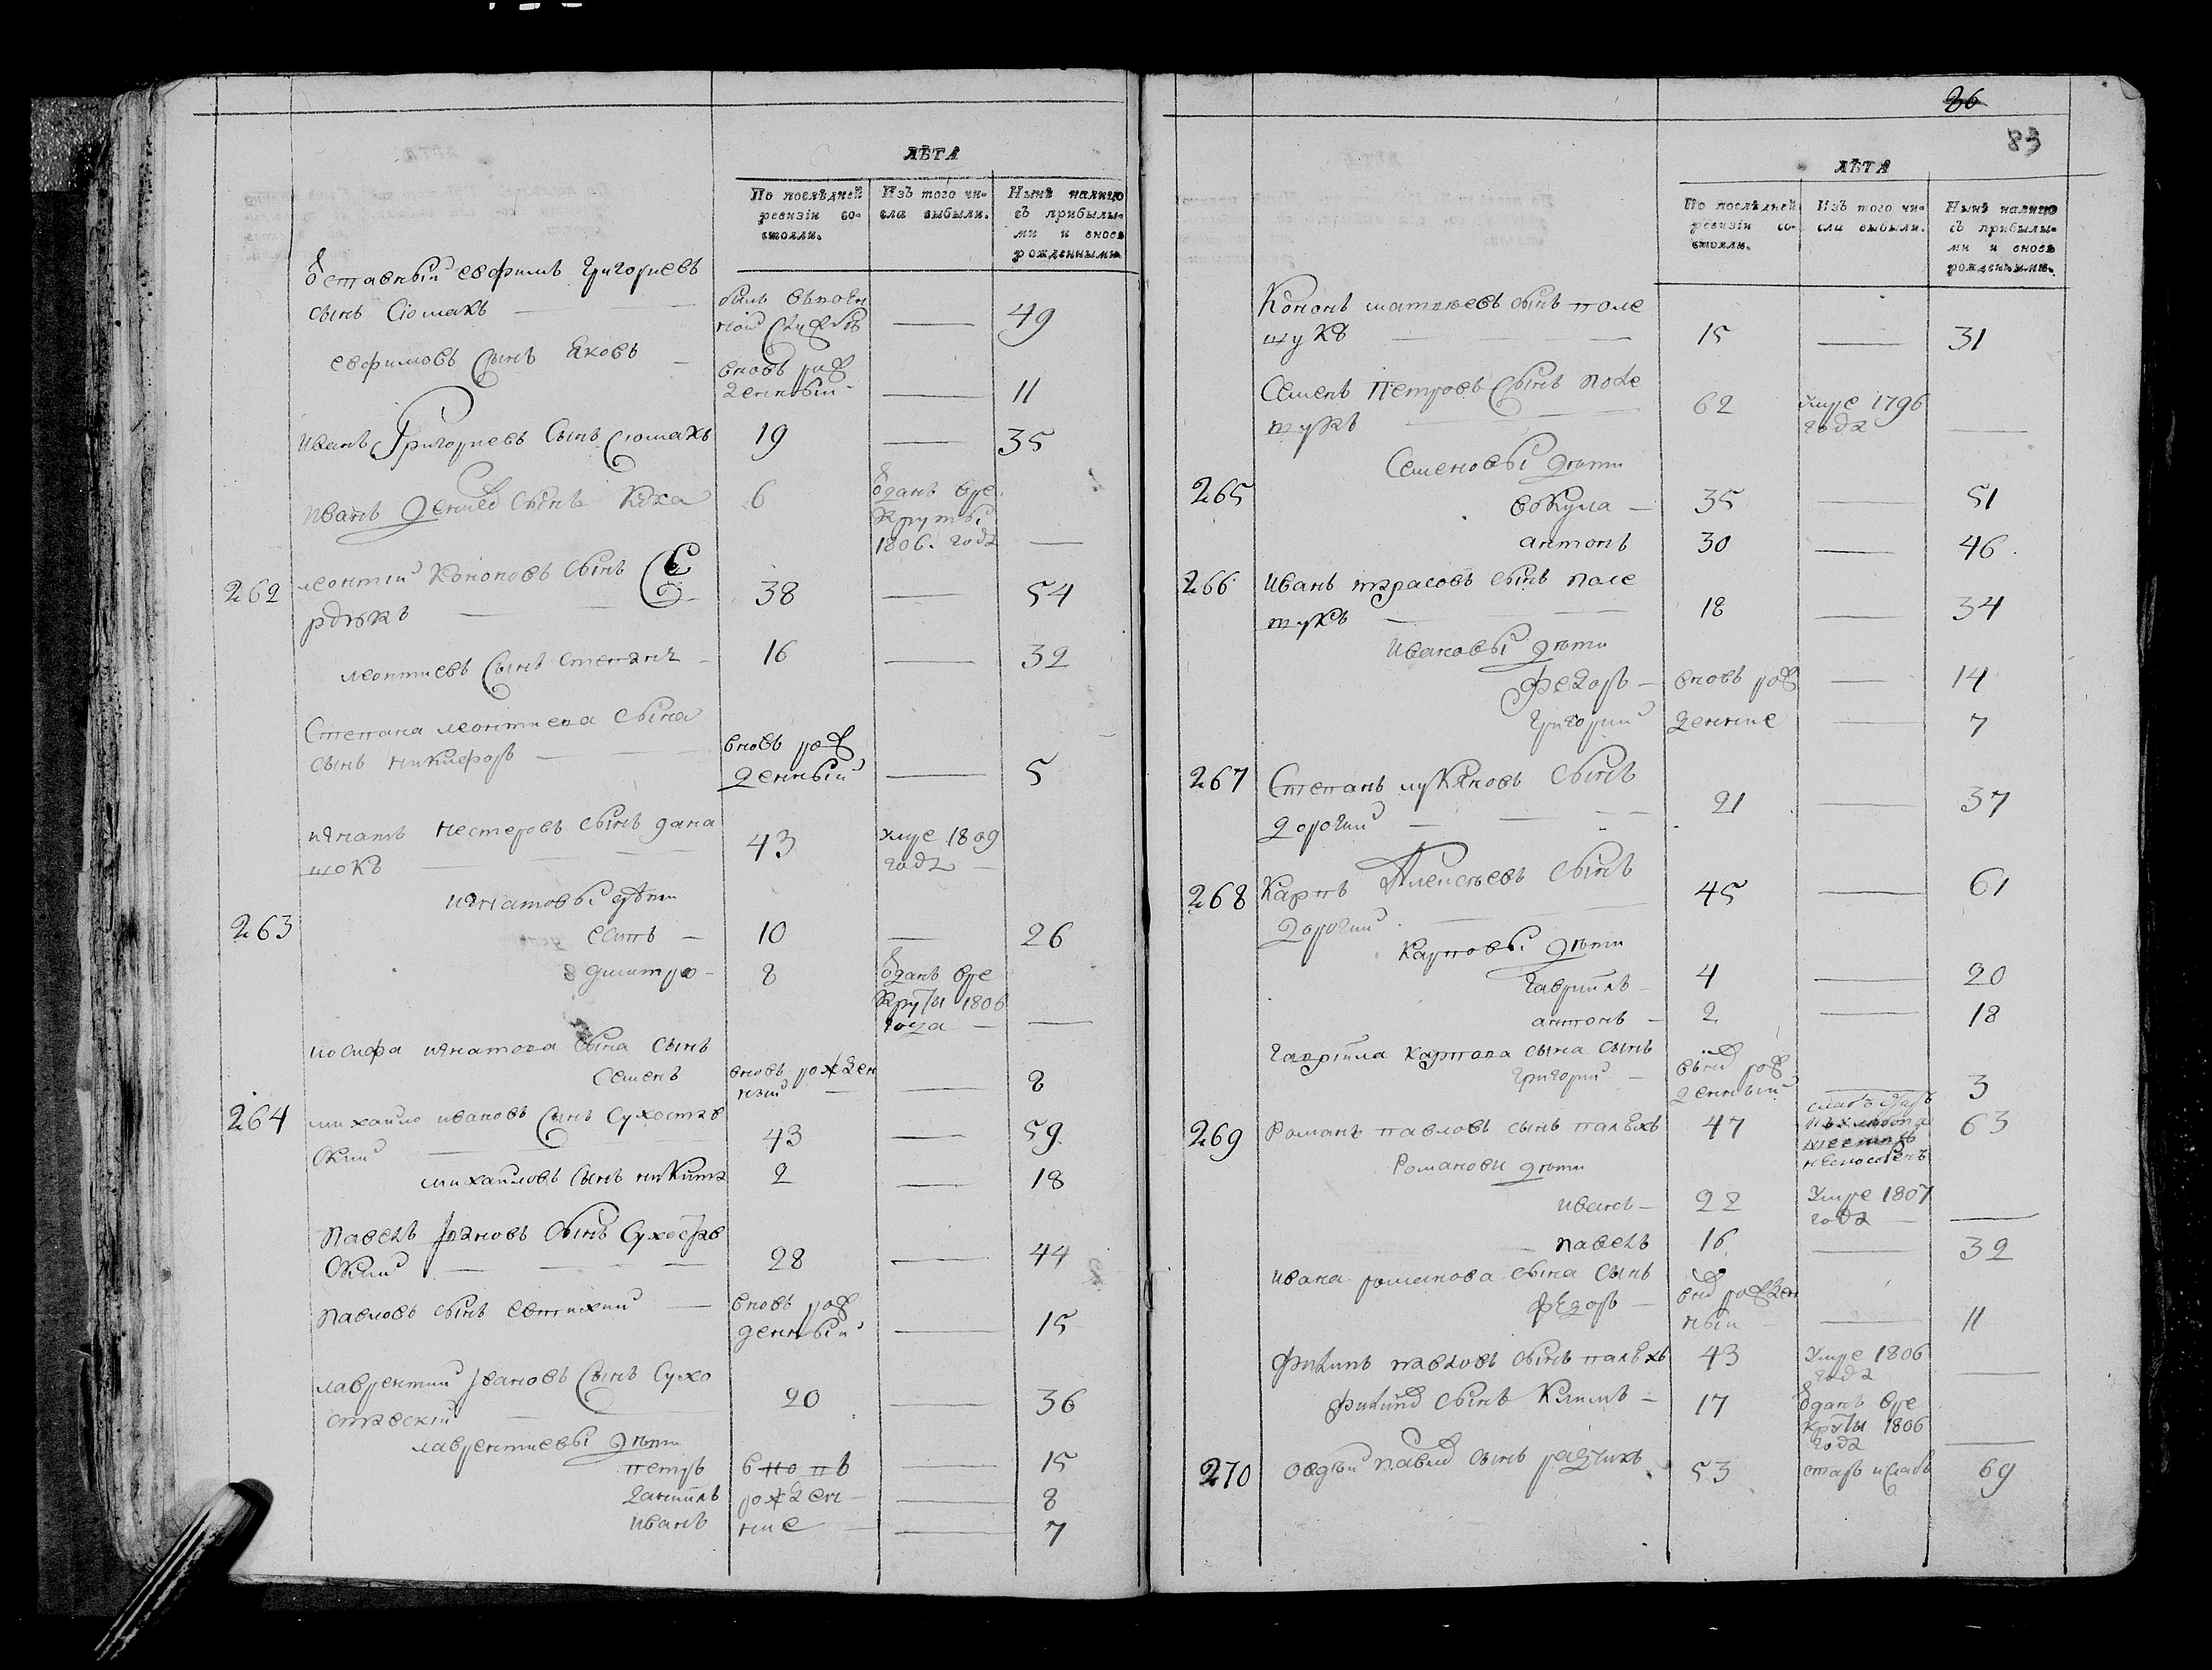 ЛѢТА
По послѣдней ревизіи со-стояли.
Изъ того чи-сла выбыли.
Нынѣ налицо съ прибылы-ми и вновь рожденными
отставный евфимъ григориевъ
сынъ Сюмакъ 49
евфимовъ сынъ Яковъ
вновь рож
денный 11
иванъ Григориевъ Сынъ Сюмакъ 19 35
иванъ сынъ 6 отданъ вре
круты
1806. года
262 леонтий Кононовъ сынъ Се
рдюкъ 38 54
леонтиевъ сынъ степанъ 16 32
Степана леонтиева сына
сынъ никифоръ
вновь рож
денный 5
игнатъ нестеровъ сынъ дана
щокъ 43 умре 1809
года
игнатовы дѣти
263 10 26
дмитро 8 отданъ вре
круты 1806
года
иосифа игнатова сына сынъ
семенъ вновь рожден
ный 8
264 михайло ивановъ сынъ Сухостав
ский 43 59
михайловъ сынъ никита 2 18
павелъ ивановъ сынъ Сухостав
ский 28 44
павловъ сынъ евтихий вновь рож
денный 15
лаврентий ивановъ сынъ Сухо
ставский 20 36
лаврентиевы дѣти
петръ вновь 15
данийлъ рожден 8
иванъ ние 7
26
83
ЛѢТА
По послѣдней ревизіи со-стояли.
Изъ того чи-сла выбыли.
Нынѣ налицо съ прибылы-ми и вновь рожденными.
Кононъ матвеевъ сынъ поле
щукъ 15 31
Семенъ Петровъ сынъ поле
щукъ 62 умре 1796
года
Семеновы дѣти
265 вокула 35 51
антонъ 30 46
266 иванъ тарасовъ сынъ поле
щукъ 18 34
ивановы дѣти
федоръ вновь рож 14
григорий денние 7
267 Степанъ лукяновъ сынъ
дорогий 21 37
268 Карпъ Алексеевъ сынъ 45 61
дорогий
карповы дѣти
гаврийлъ 4 20
антонъ 2 18
гаврийла карпова сына сынъ
григорий вновь рож
денный 3
269 Романъ павловъ сынъ 47 63
неспособенъ
Романови дѣти
иванъ 22 умре 1807
года
павелъ 16 32
ивана романова сына сынъ
федоръ вновь рожден
ный 11
филипъ павловъ сынъ 43 умре 1806
года
филиповъ сынъ климъ 17 отданъ вре
круты 1806
года
270 павловъ сынъ 53 старъ и слабъ 69